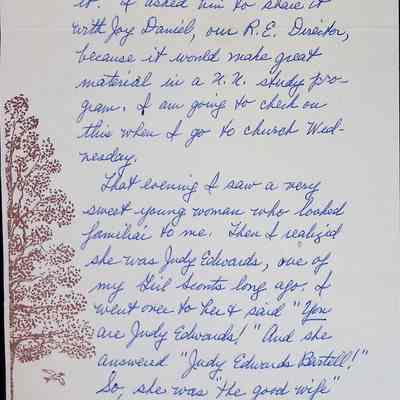 it. I asked him to share it
with Joy Daniel, our R.E. Director,
because it would make great
material in a U.U. study pro-
gram. I am going to check on
this when I go to church Wed-
nesday.
That evening I saw a very
sweet young woman who looked
familiar to me. Then I realized
she was Judy Edwards, one of
my Girl Scouts long ago. I
went over to her & said "You
are Judy Edwards!" And she
answered "Judy Edwards Bartell!"
So, she was "the good wife"